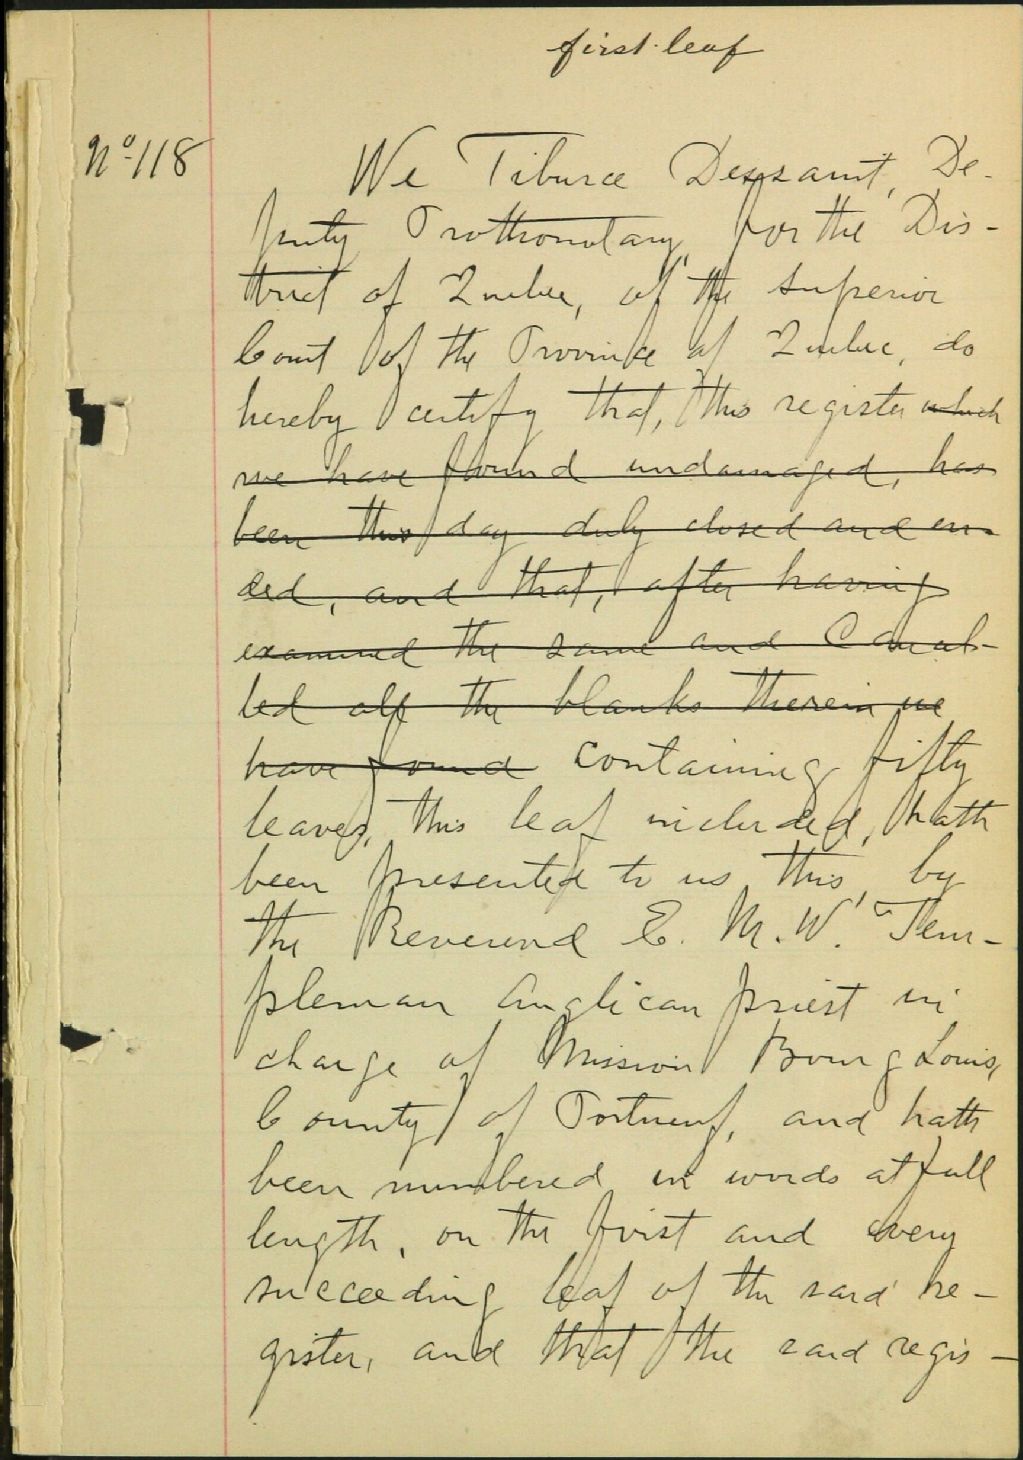 first leaf
No. 118
We Tiburce Dessaint, De-
puty Prothonotary, for the Dis-
trict of Quebec, of the Superior
Court of the Province of Quebec, do
hereby certify that, this register which
we have found undamaged, has
been this day duly closed and en-
ded, and that, after having
examined the same and Cancel-
led all the blanks therein we
have found containing fifty
leaves, this leaf included, hath
been presented to us, this, by
the Reverend E. M. W. Tem-
pleman Anglican priest in
charge of Mission Bourg Louis,
County of Portneuf, and hath
been numbered in words at full
length, on the first and every
succeeding leaf of the said re-
gister, and that the said regis-